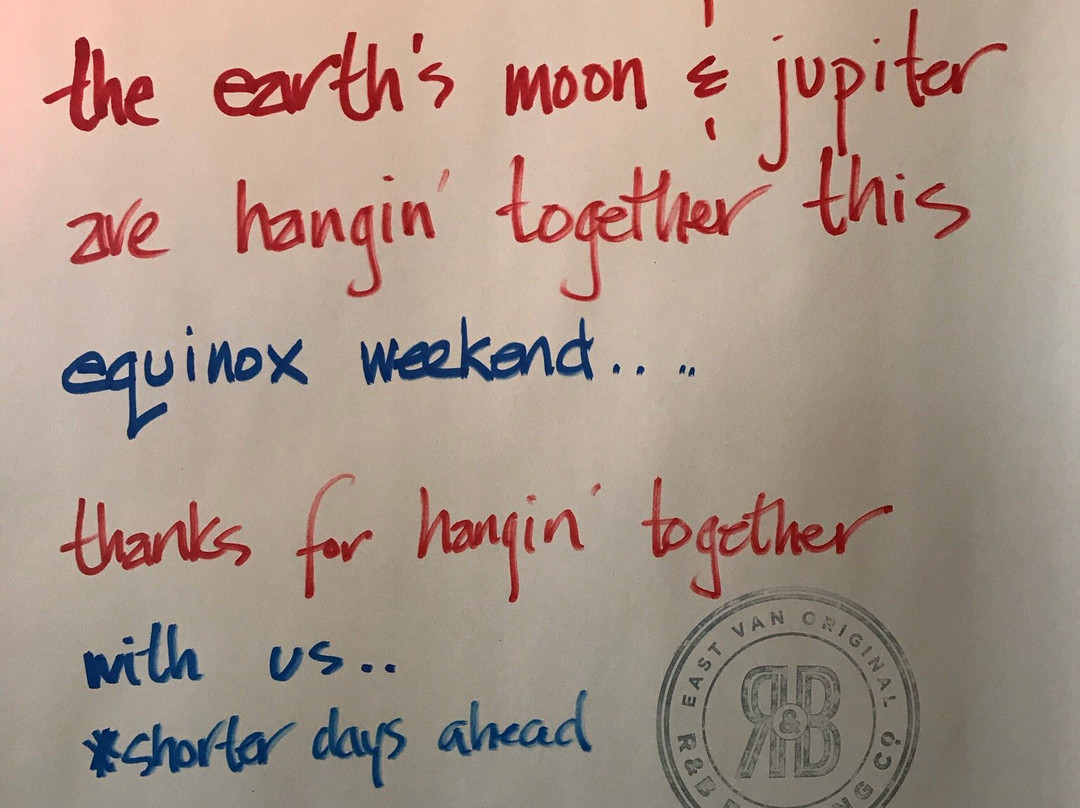 the earth's moon & jupiter
are hangin' together this
equinox weekend.. ..
thanks for hangin' together
with us..
*shorter days ahead
EAST VAN ORIGINAL
R&B
R&B CO.